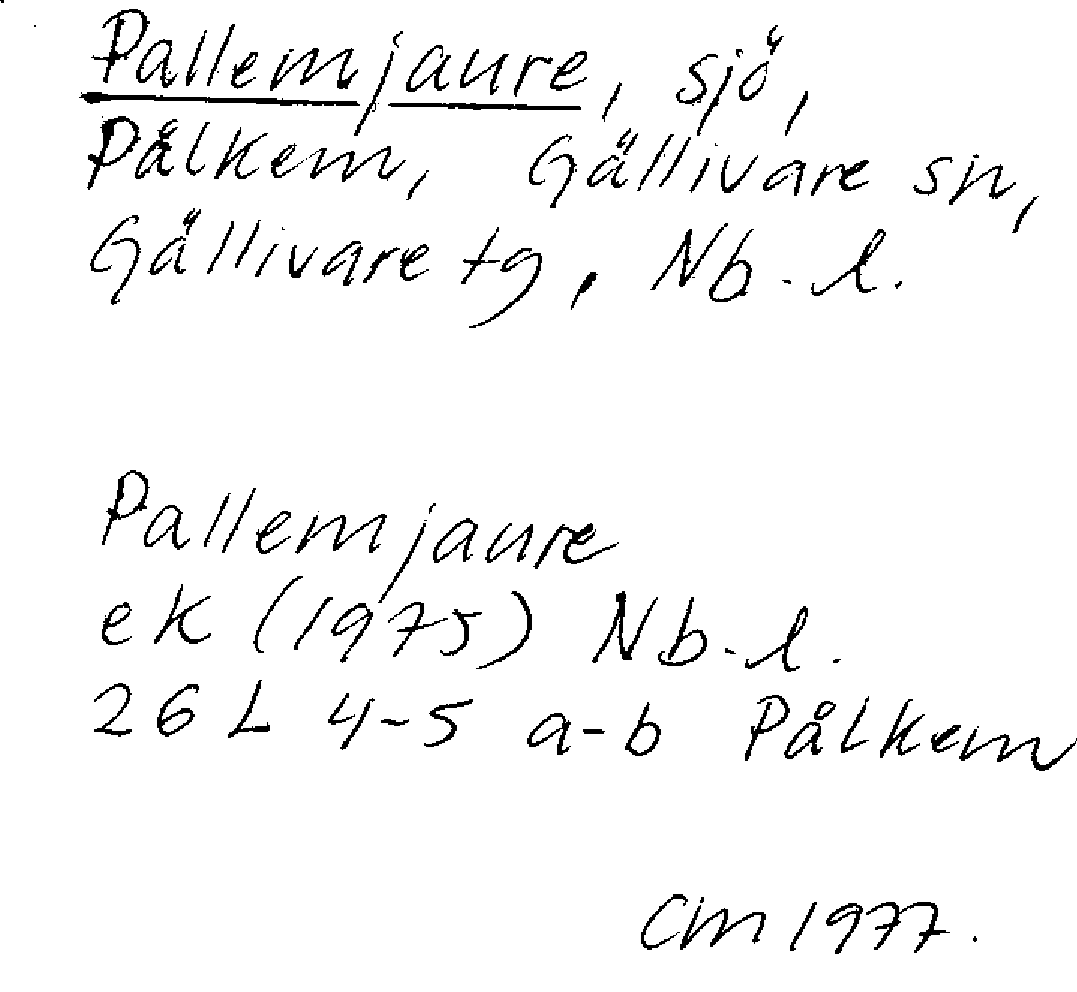 Pallemjaure, sjö,
Pålkem, Gällivare sn,
Gällivare tg, Nb-l.
Pallemjaure
ek (1975) Nb-l.
26 L 4-5 a-b Pålkem
CM 1977.